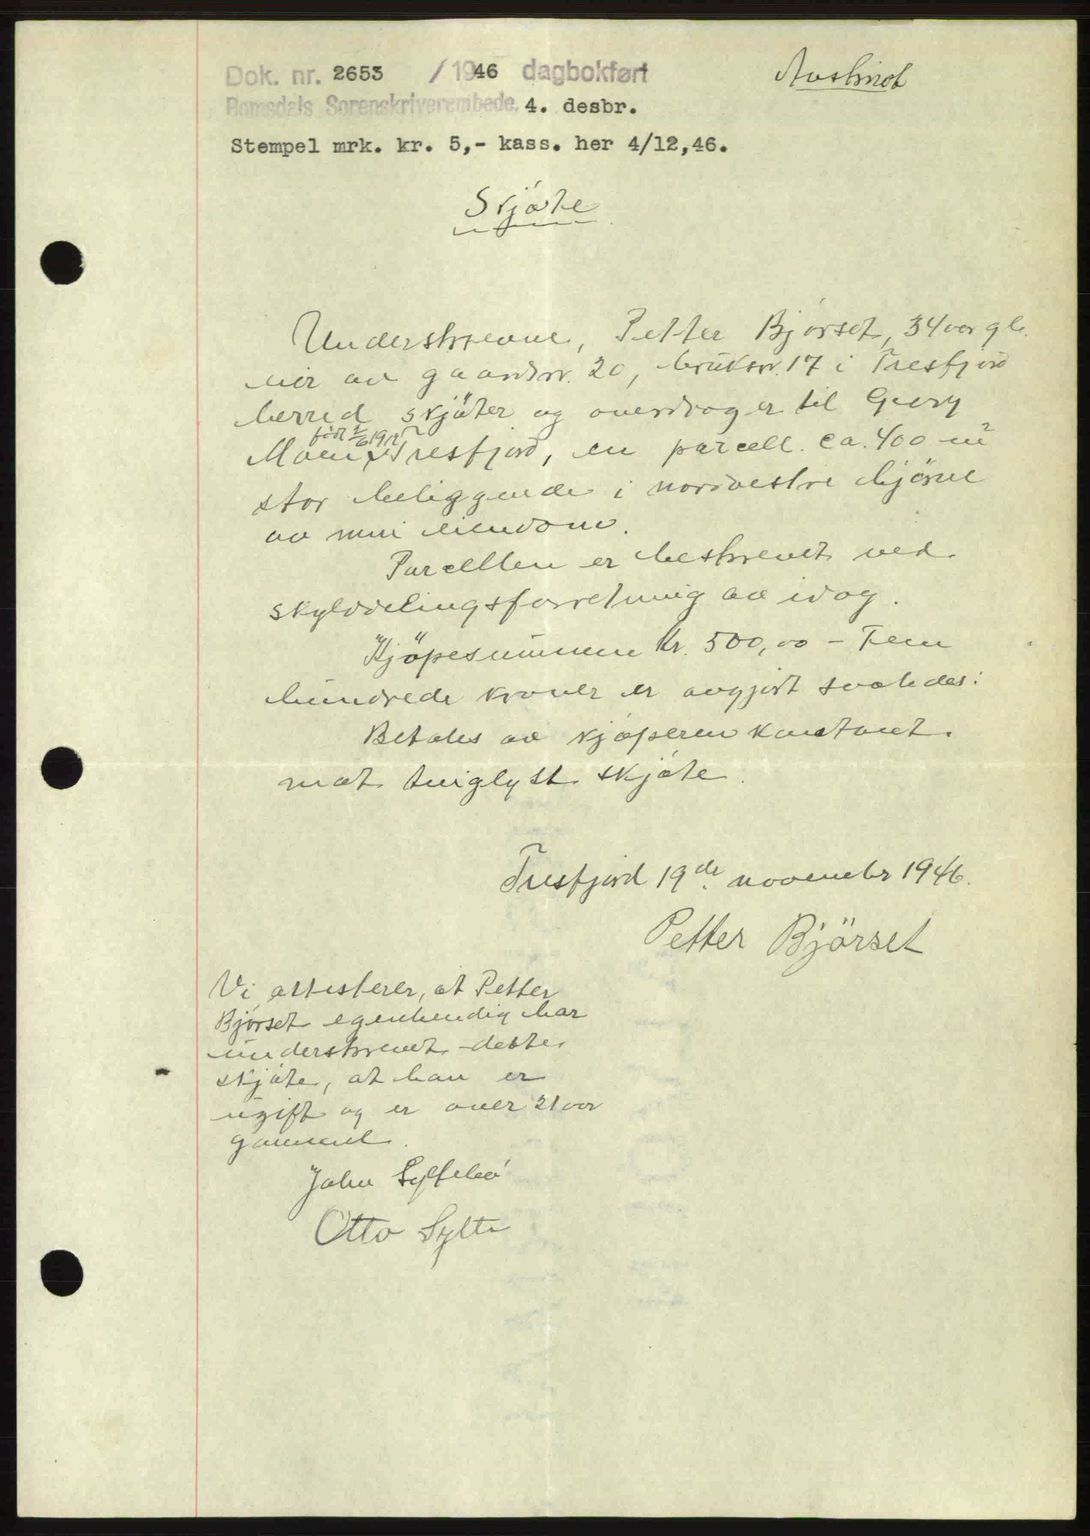 Dok. nr. 2653 /1946 dagbokført
Avskrift
Romsdals Sorenskriverembede. 4. desbr.
Stempel mrk. kr. 5,- kass. her 4/12,46.
Skjøte
Underskrevne, Petter Bjørset, 34 aar gl.
eier av gaardsnr. 20, bruksnr. 17 i Tresfjord
herred skjøter og overdrager til Georg
Moen, Tresfjord, en parcell ca. 400 m²
stor beliggende i nordvestre hjørne
av min eiendom.
Parcellen er beskrevet ved
skylddelingsforretning av idag.
Kjøpesummen kr. 500,00 - Fem
hundrede kroner er avgjort saaledes:
Betales av kjøperen kontant
mot tinglyst skjøte.
Tresfjord 19de november 1946.
Petter Bjørset
Vi attesterer, at Petter
Bjørset egenhendig har
underskrevet dette
skjøte, at han er
ugift og er over 21 aar
gammel.
John Syltebø
Otto Sylte